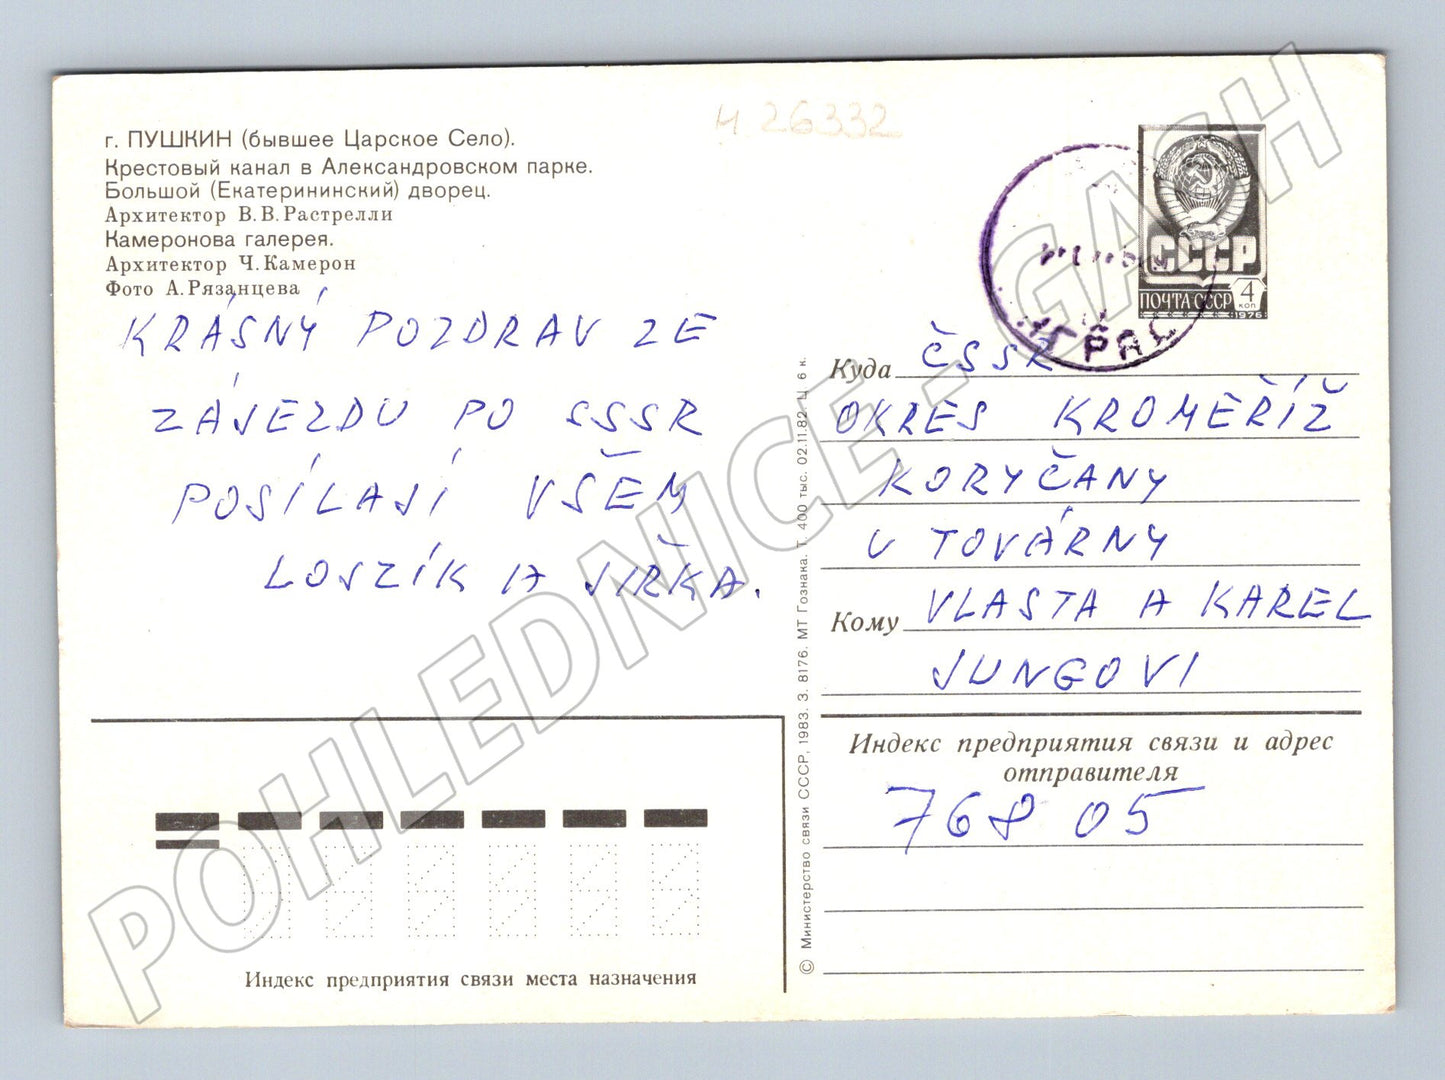 Ч 26332
г. ПУШКИН (бывшее Царское Село).
Крестовый канал в Александровском парке.
Большой (Екатерининский) дворец.
Архитектор В. В. Растрелли
Камеронова галерея.
Архитектор Ч. Камерон
Фото А. Рязанцева
KRÁSNÝ POZDRAV ZE
ZÁJEZDU PO SSSR
POSÍLAJÍ VŠEM
LOSZÍK A JIRKA.
СССР
ПОЧТА СССР 4 КОП
1976
Куда ČSSR
OKRES KROMĚŘÍŽ
KORYČANY
U TOVÁRNY
Кому VLASTA A KAREL
JUNGOVI
Индекс предприятия связи и адрес
отправителя
768 05
Индекс предприятия связи места назначения
© Министерство связи СССР, 1983. З. 8176. МТ Гознака. Т. 400 тыс. 02.11.82. Ц. 6 к.
POHLEDNICE - GASH